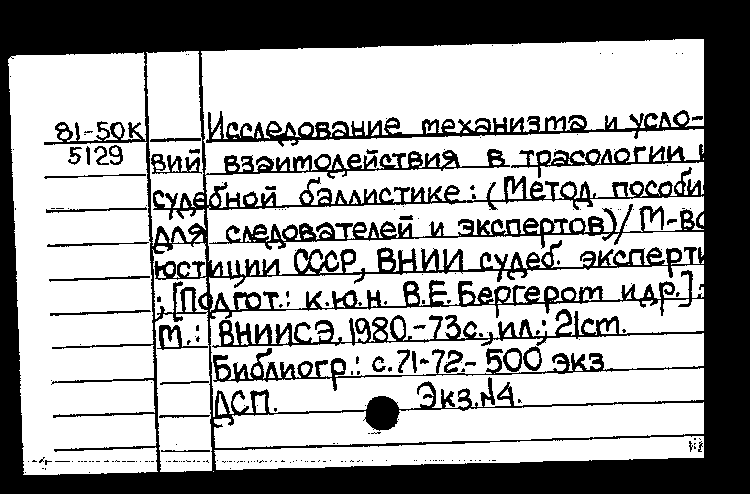 81-50К
5129
Исследование механизма и усло-
вий взаимодействия в трасологии и
судебной баллистике: (Метод. пособи
для следователей и экспертов)/ М-во
юстиции СССР, ВНИИ судеб. эксперти
; [Подгот.: к.ю.н. В.Е. Бергером и др.].
М.: ВНИИСЭ, 1980.-73с., ил.; 21см.
Библиогр.: с.71-72.- 500 экз
ДСП. Экз.№4.